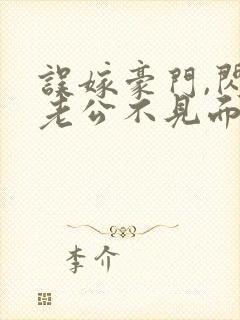 誤嫁豪門,閃
老公不見而
李介